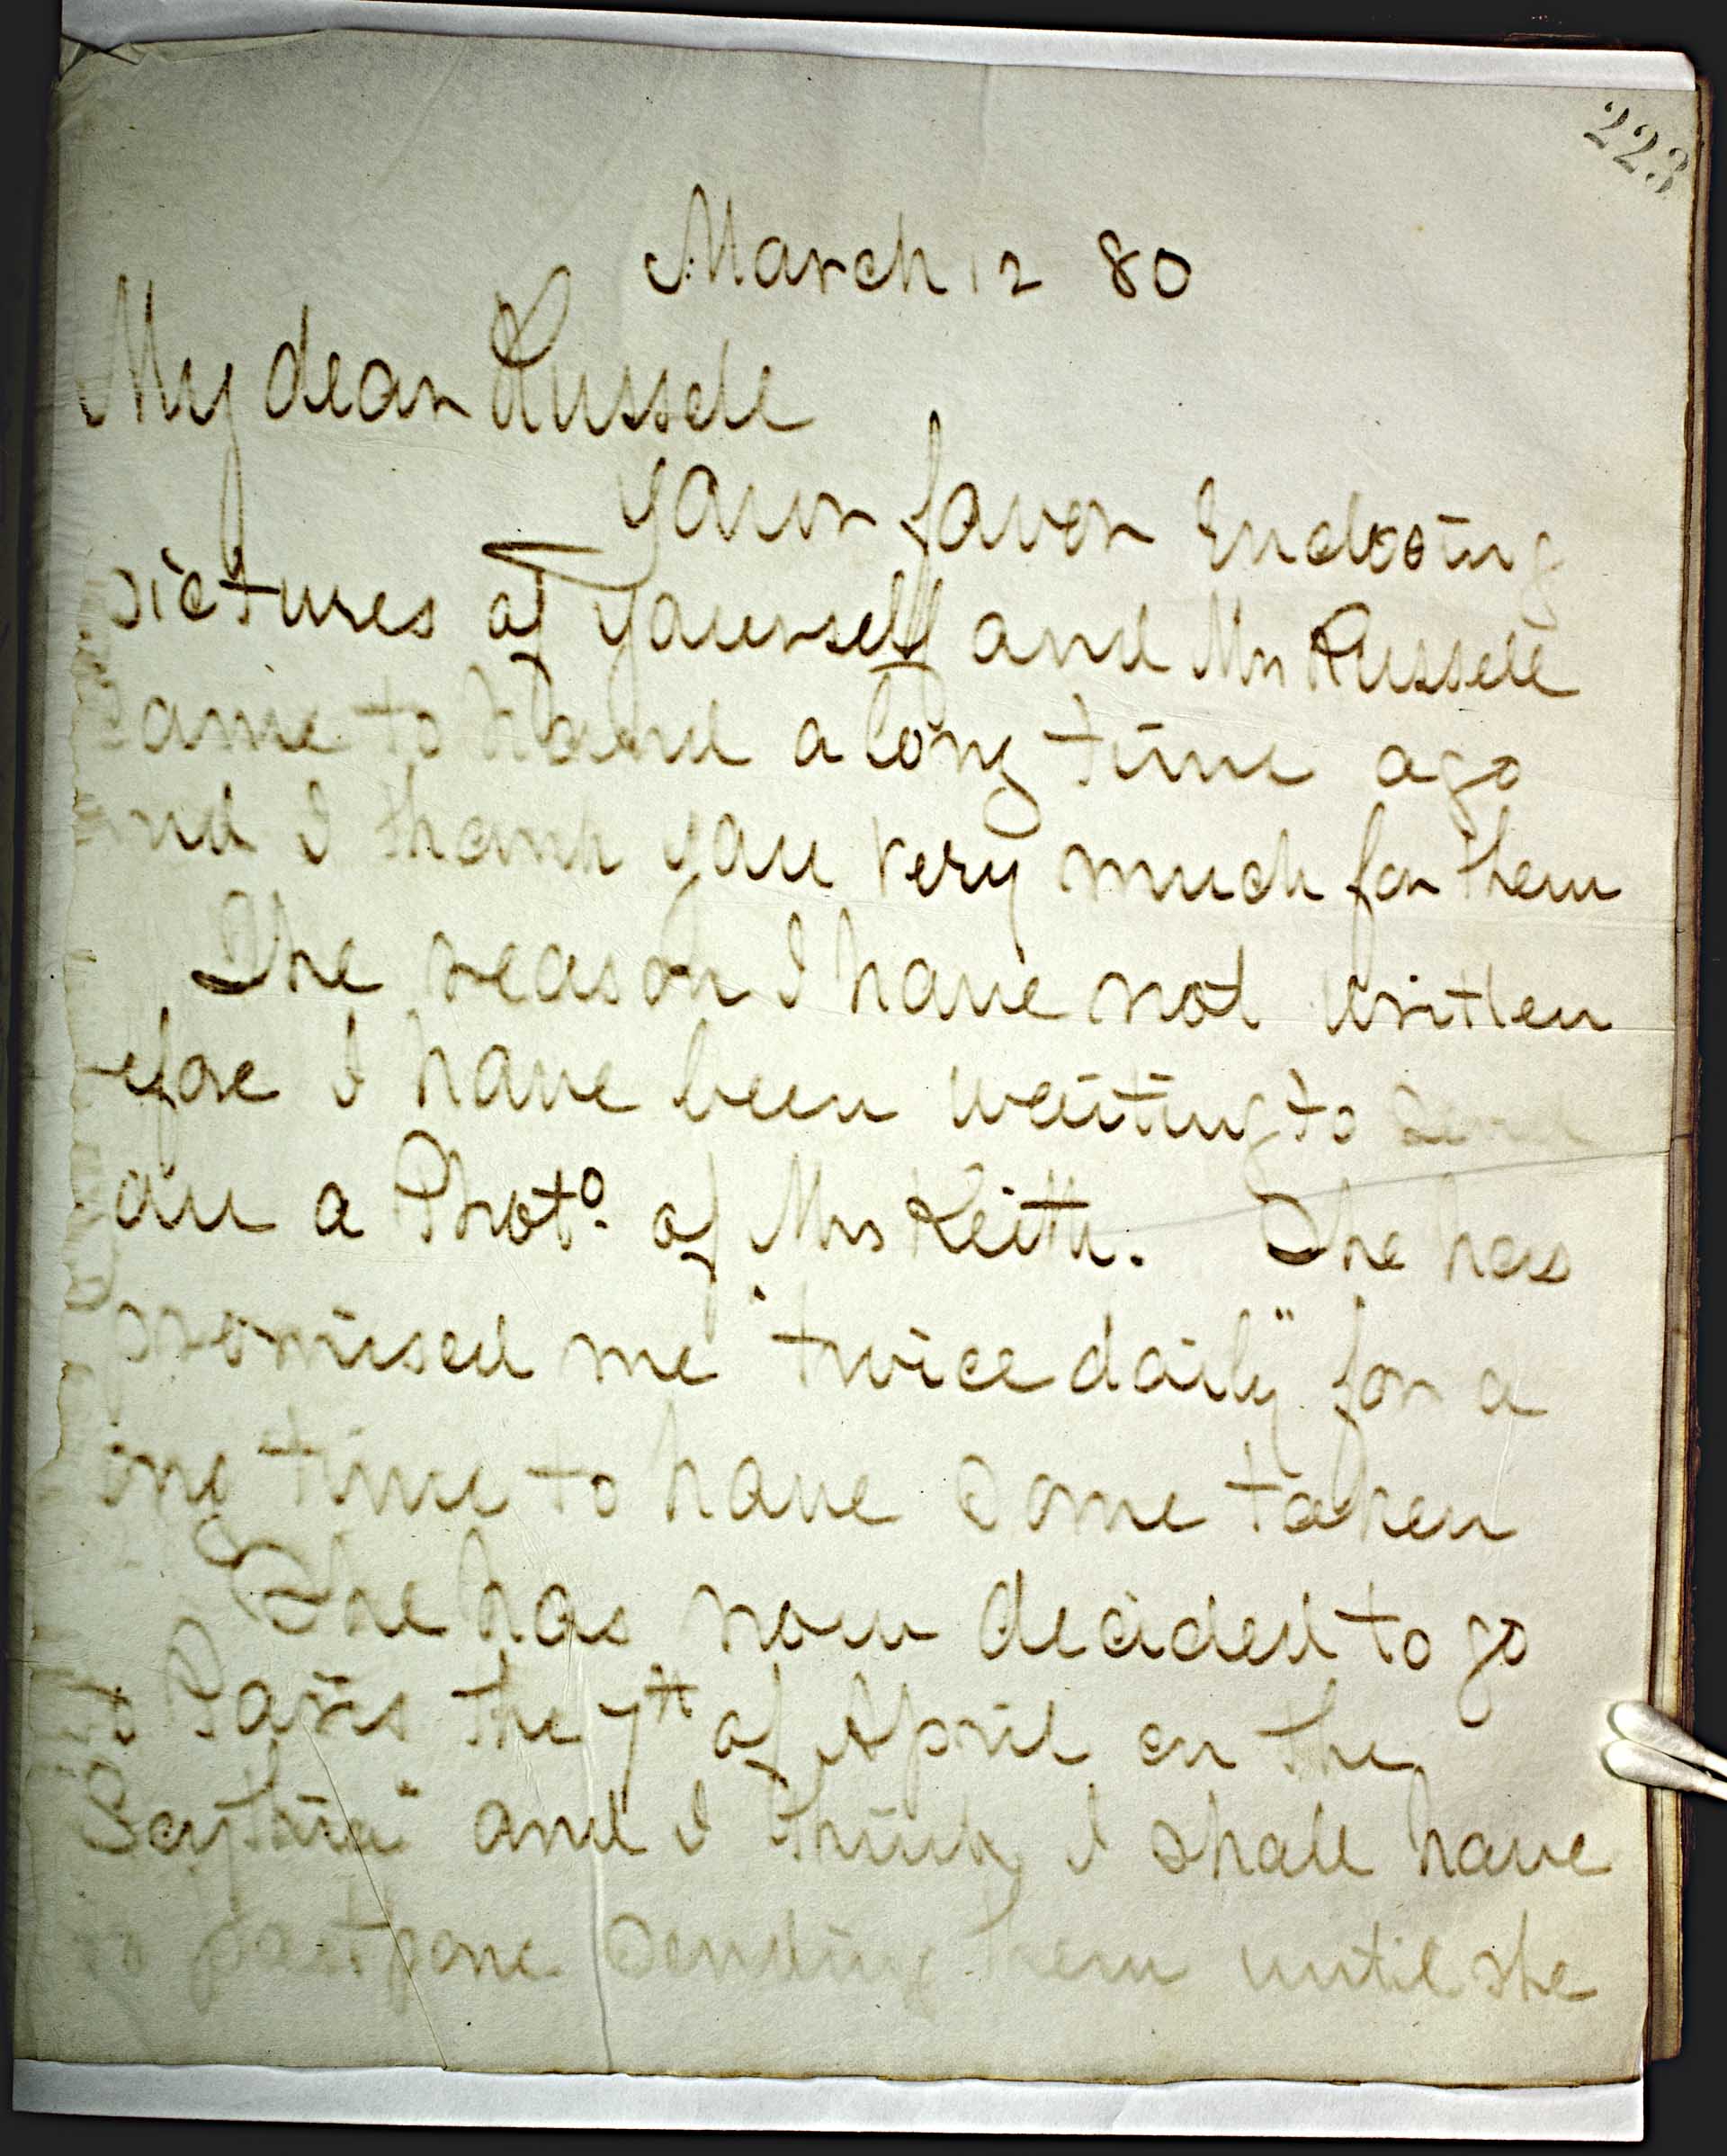 223
March 12 80
My dear Russell
Your favor Enclosing
pictures of yourself and Mrs Russell
came to hand a long time ago
and I thank you very much for them
The reason I have not written
efore I have been waiting to send
ou a Photo. of Mrs Keith. She has
promised me "twice daily" for a
long time to have some taken
She has now decided to go
to Paris the 7th of April on the
Scythia" and I think I shall have
to postpone sending them until she